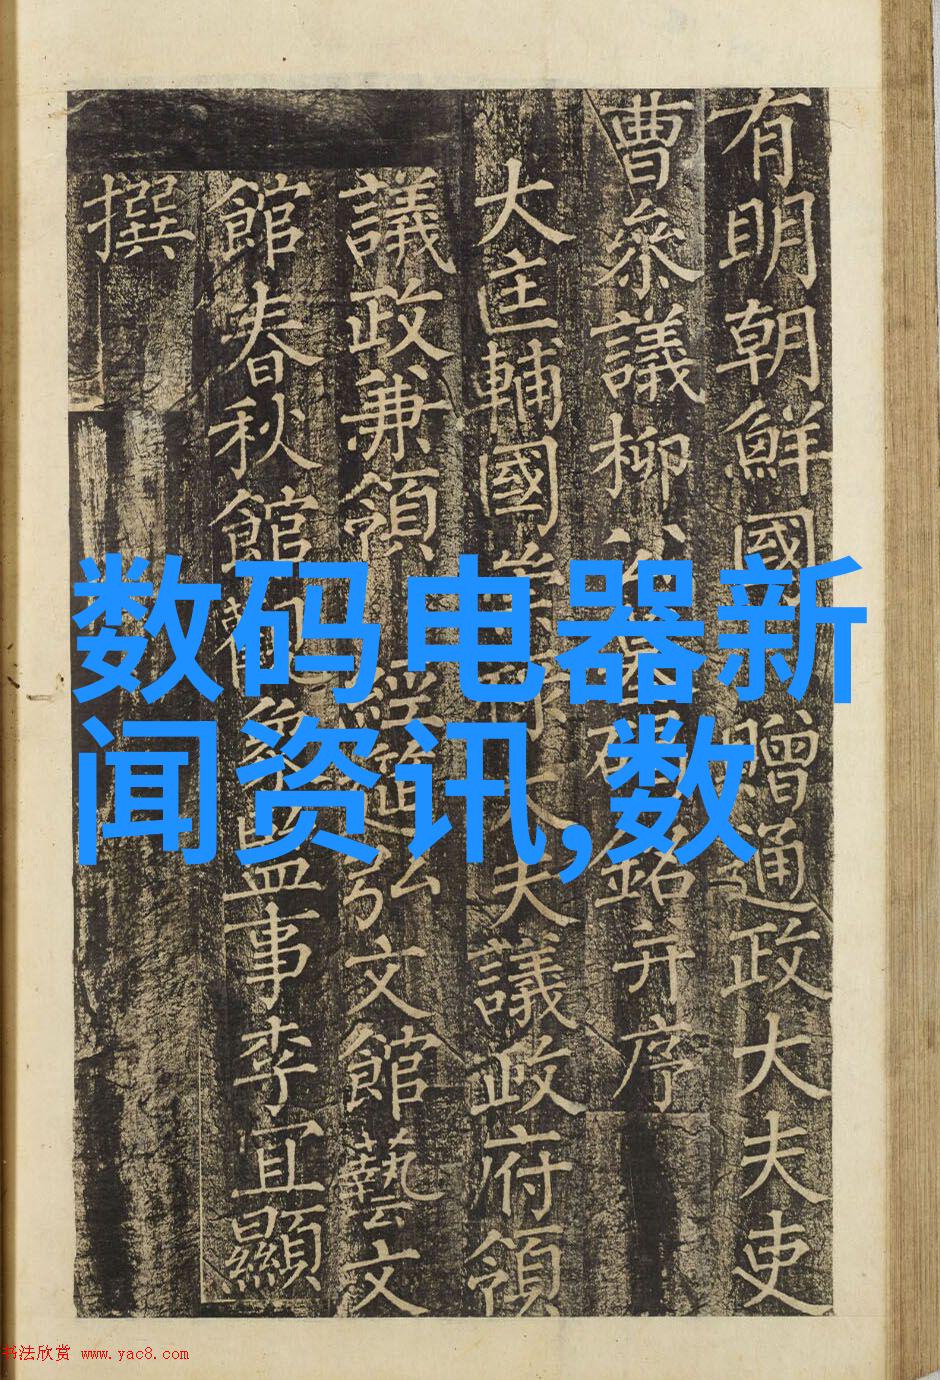 有明朝鮮國贈通政大夫吏
曹叅議柳公銘并序
大匡輔國崇祿大夫議政府領
議政兼領經筵弘文館藝文
館春秋館觀象監事李宜顯
撰
数码电器新
闻资讯,数
书法欣赏 www.yac8.com